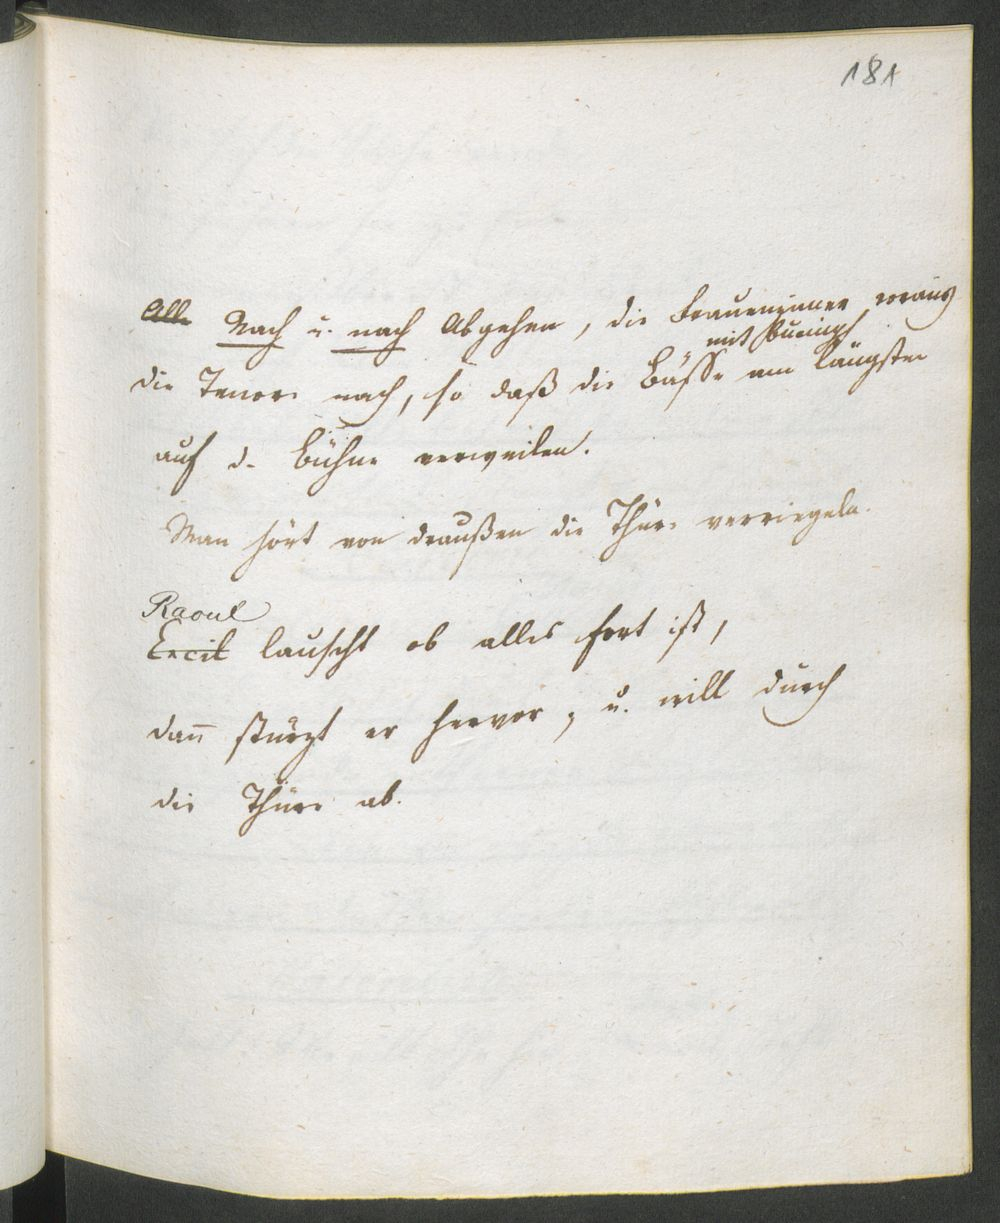 181
All. Nach u. nach Abgehen, die Frauenzimer voraus
mit Bucingh
die Tenore nach, so daß die Bässe am längsten
auf d. Bühne verweilen.
Man hört von draußen die Thüre verriegeln.
Raoul
Ercil lauscht ob alles fort ist,
dann stürzt er hervor, u. will durch
die Thüre ab.